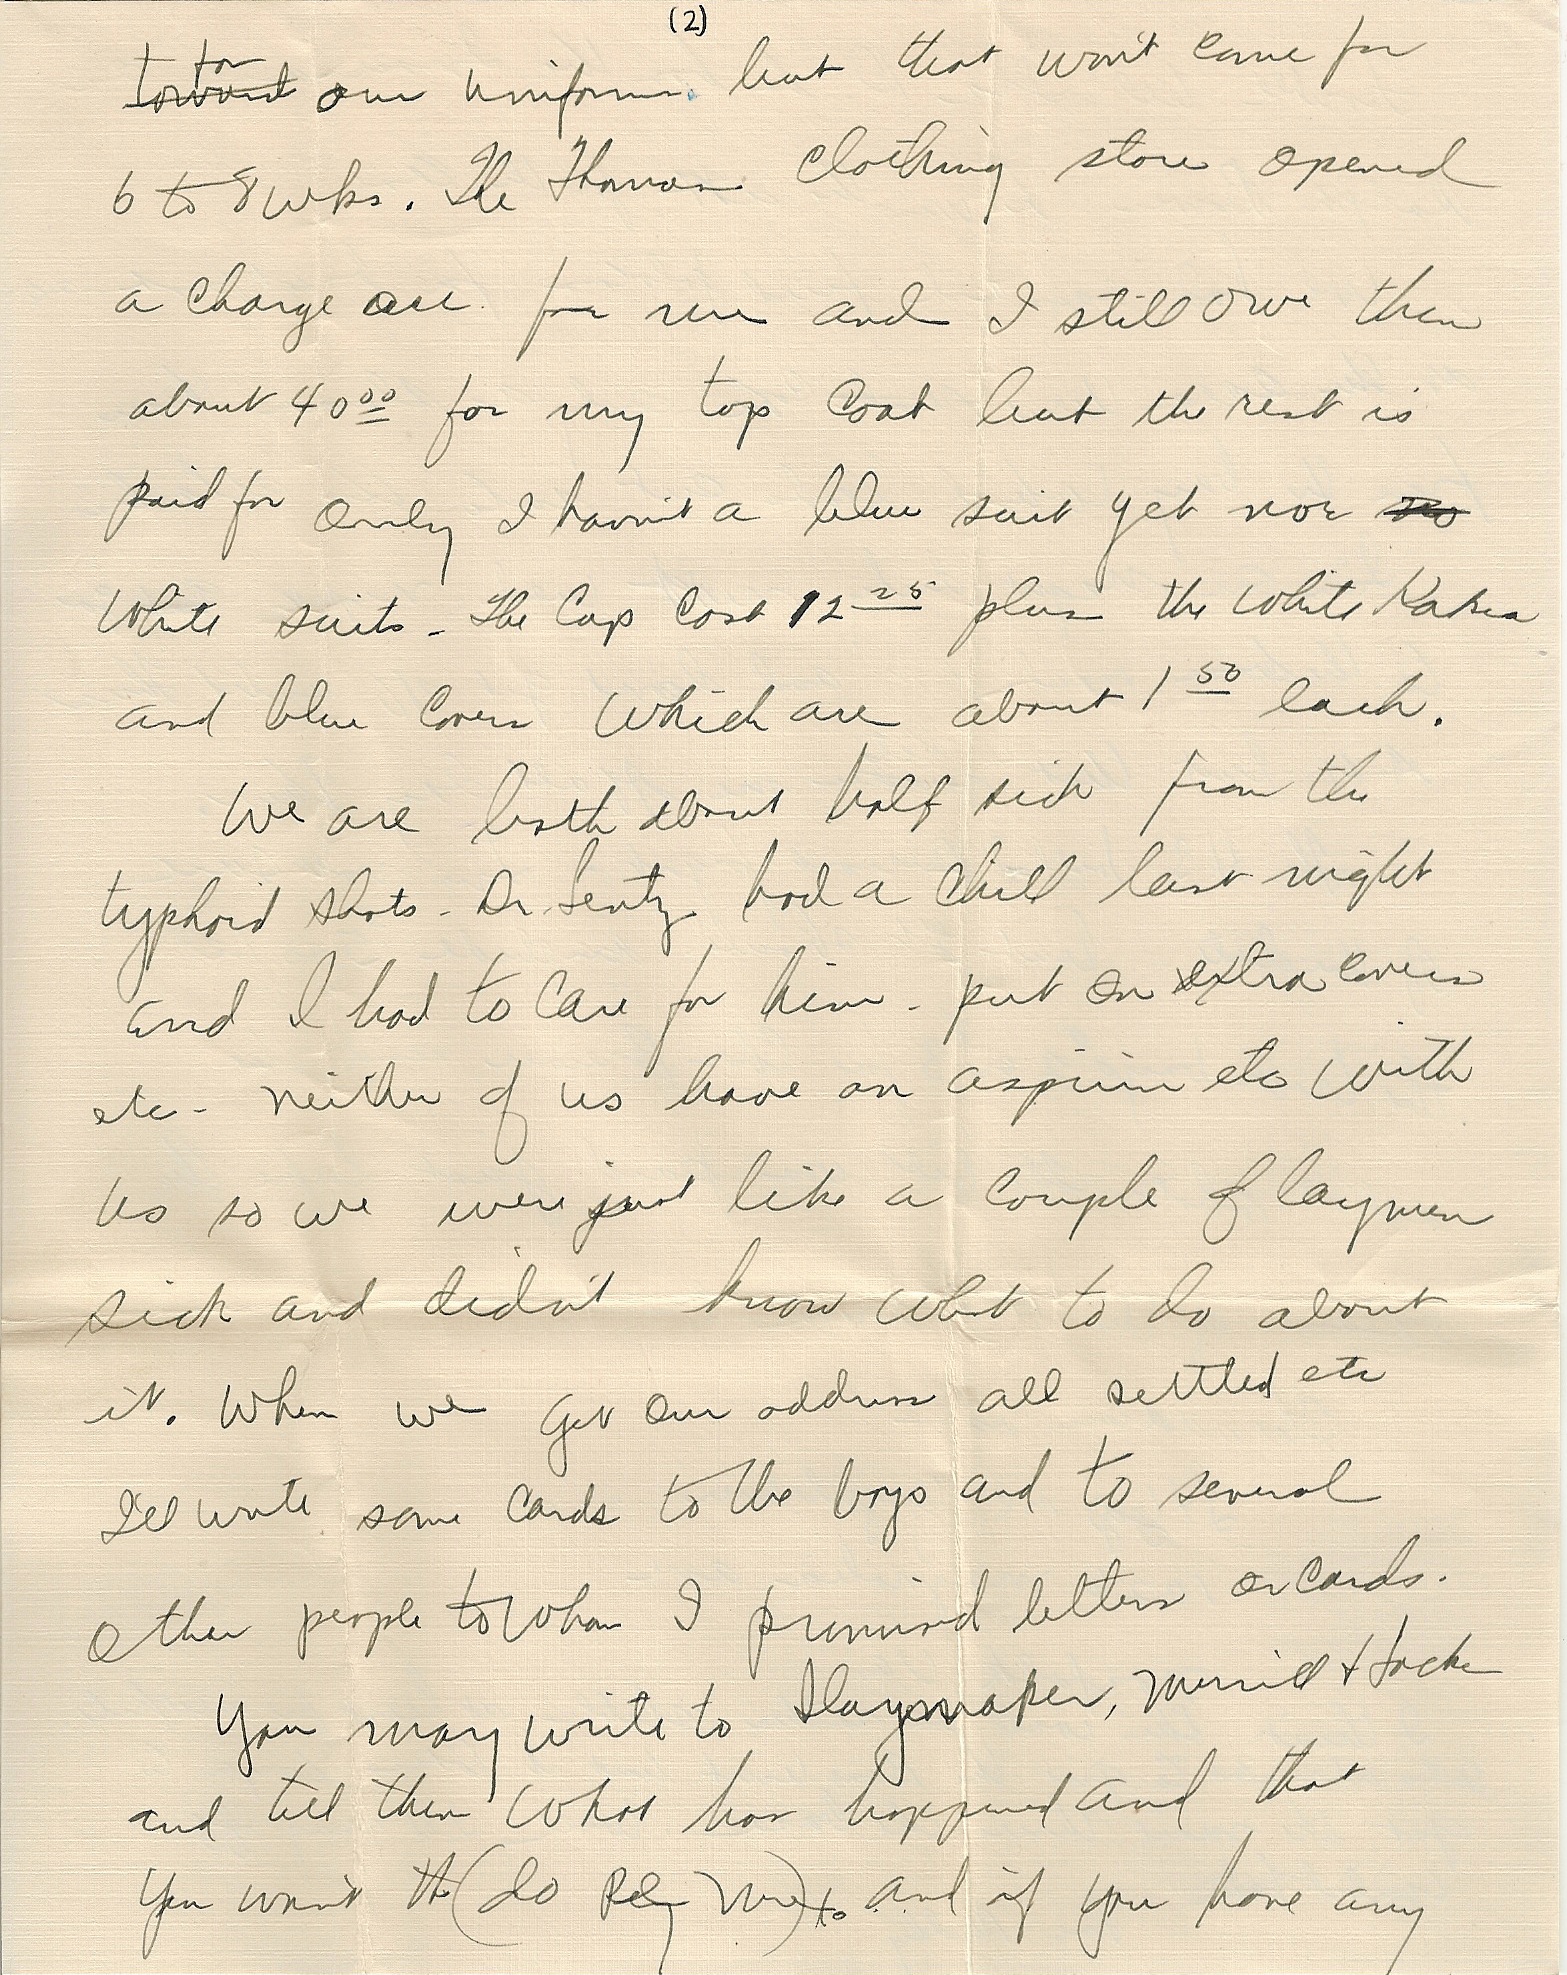 (2)
for
toward our uniforms. but that won't come for
6 to 8 wks. The Thomas clothing store opened
a charge acc. for me and I still owe them
about 40 00 for my top coat but the rest is
paid for only I havn't a blue suit yet nor no
white suits - The Cap cost 12 25 plus the white Kakea
and blue covers which are about 1 50 each.
We are both about half sick from the
typhoid shots - Dr. Lentz had a chill last night
and I had to care for him - put on extra covers
etc - neither of us have an aspirin etc with
us so we were just like a couple of laymen
sick and didn't know what to do about
it. When we get our address all settled etc
I'll write some cards to the boys and to several
other people to whom I promised letters or cards.
You may write to Slaymaker, Merrill +
and tell them what has happened and that
you want th (do Rely Me) to and if you have any